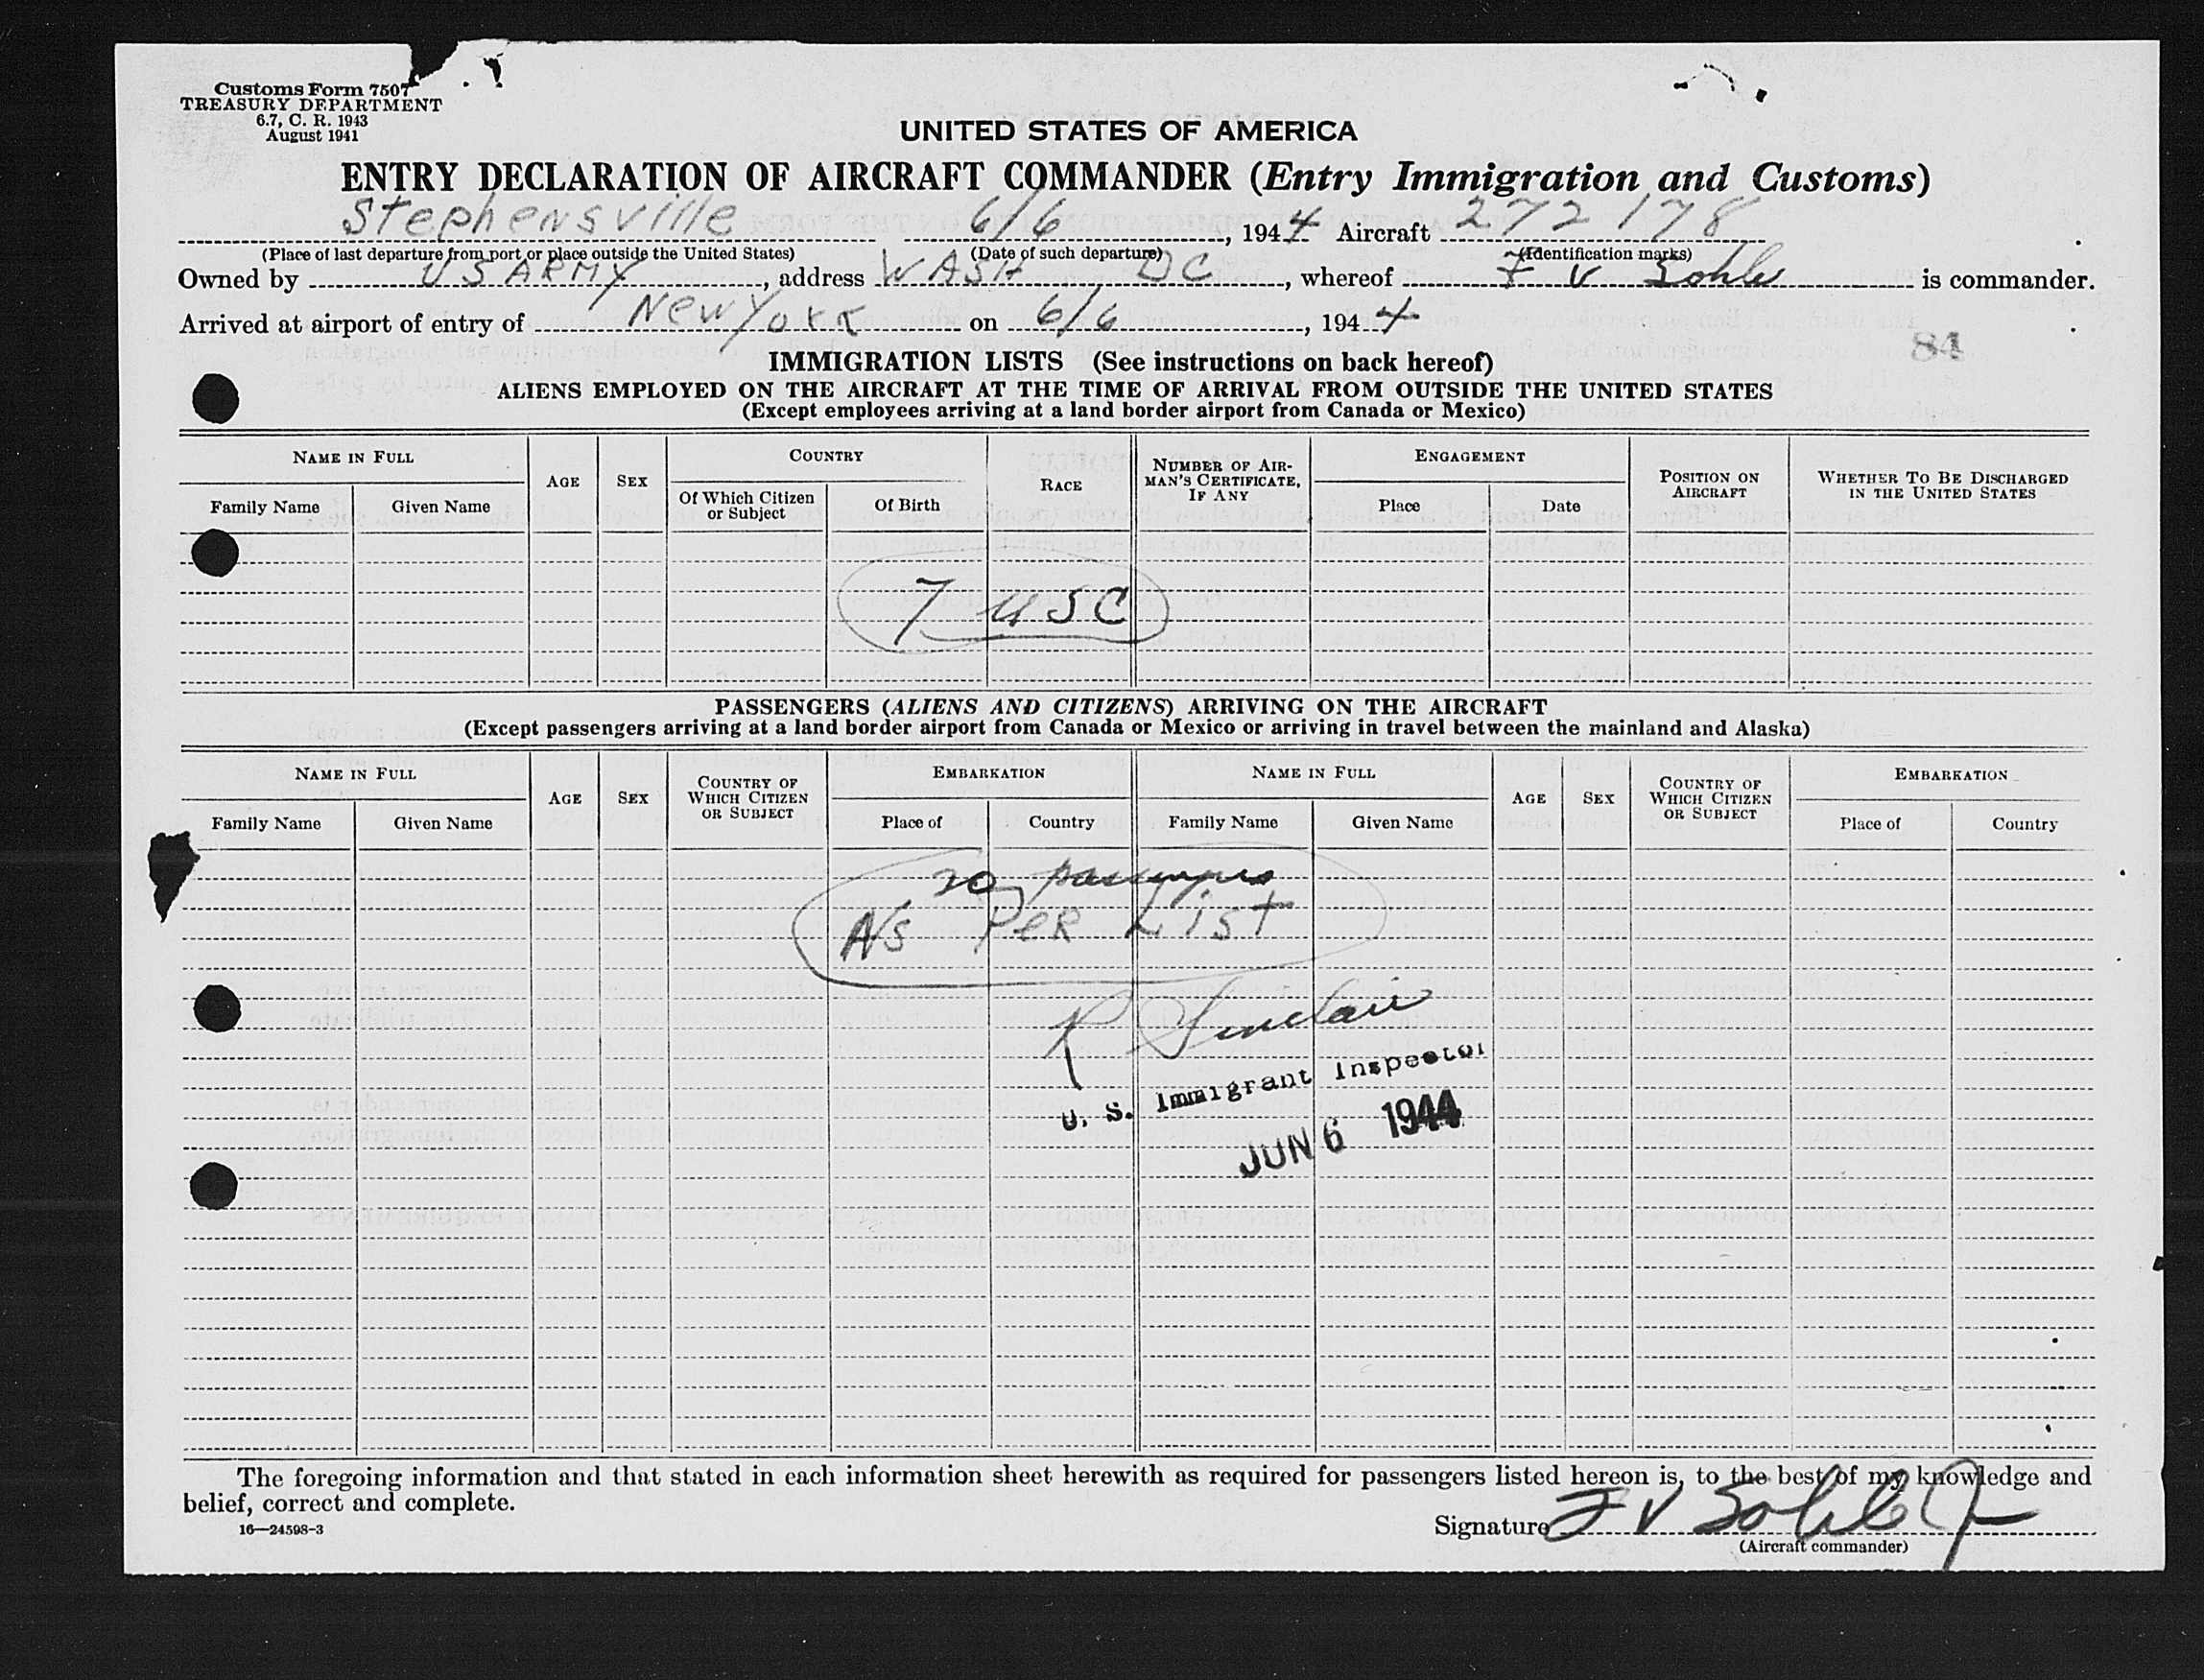 Customs Form 7507
TREASURY DEPARTMENT
6.7, C. R. 1943
August 1941
UNITED STATES OF AMERICA
ENTRY DECLARATION OF AIRCRAFT COMMANDER (Entry Immigration and Customs)
Stephensville 6/6, 1944 Aircraft 272178
(Place of last departure from port or place outside the United States) (Date of such departure) (Identification marks)
Owned by US ARMY, address WASH DC, whereof F V Sohle is commander.
Arrived at airport of entry of New York on 6/6, 1944
84
IMMIGRATION LISTS (See instructions on back hereof)
ALIENS EMPLOYED ON THE AIRCRAFT AT THE TIME OF ARRIVAL FROM OUTSIDE THE UNITED STATES
(Except employees arriving at a land border airport from Canada or Mexico)
NAME IN FULL AGE SEX COUNTRY RACE NUMBER OF AIRMAN'S CERTIFICATE, IF ANY ENGAGEMENT POSITION ON AIRCRAFT WHETHER TO BE DISCHARGED IN THE UNITED STATES
Family Name Given Name Of Which Citizen or Subject Of Birth Place Date
7 USC
PASSENGERS (ALIENS AND CITIZENS) ARRIVING ON THE AIRCRAFT
(Except passengers arriving at a land border airport from Canada or Mexico or arriving in travel between the mainland and Alaska)
NAME IN FULL AGE SEX COUNTRY OF WHICH CITIZEN OR SUBJECT EMBARKATION NAME IN FULL AGE SEX COUNTRY OF WHICH CITIZEN OR SUBJECT EMBARKATION
Family Name Given Name Place of Country Family Name Given Name Place of Country
20 passengers
A/S PER LIST
R Sinclair
U. S. Immigrant Inspector
JUN 6 1944
The foregoing information and that stated in each information sheet herewith as required for passengers listed hereon is, to the best of my knowledge and
belief, correct and complete.
16—24598-3
Signature F V Sohle Jr
(Aircraft commander)